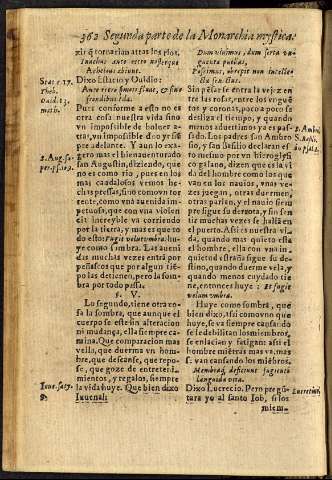 362 Segunda parte de la Monarchia mystica:
zir q̃ tornarian atras los rios.
Inachus ante retro noſterque
Dixo Eſtacio y Ouidio:
Stat. l. 17.
Theb.
Ouid. 13.
met.
Pues conforme a eſto no es
otra coſa nueſtra vida ſino
vn impoſsible de boluer a-
tras, vn impoſsible d̃ no yrſiẽ
pre adelante. Y aun lo exa-
gero mas el bienauenturado
San Auguſtin, diziendo, que
2. Aug. ſu-
per pſ. 109.
no es como rio, pues en los
mas caudaloſos vemos he-
chas preſſas, ſino como vn tor
rente, como vnã auenida im-
petuoſa, que con vna violen
cia increyble va corriendo
por la tierra, y mas es que to
do eſto: Fugit velut umbra. hu-
ye como ſombra. Las aueni
das muchas vezes entra por
peñaſcos que por algun tiẽ-
po las detienen, pero la ſom-
bra por todo paſſa.
§. V.
Lo ſegundo, tiene otra co-
ſa la ſombra, que aunque el
cuerpo ſe eſte ſin alteracion
ni mudança, ella ſiempre ca-
mina. Que comparacion mas
vella, que duerma vn hom-
bre, que deſcanſe, que repo-
ſe, que goze de entreteni-
mientos, y regalos, ſiempre
la vida huye. Que bien dixo
Iuue. ſaty.
Iuuenal:
Dum vinimus, dum ſerta vn-
guenta puellas,
Poſcimus, obrepit non intelle-
cta ſenectus.
Sin pẽſarſe entra la vejez en
tre las roſas, entre los vnguẽ
tos, y corona, paçoa poco ſe
deſliza el tiempo, y quando
menos aduertimos ya es paſ-
ſado. Los padres ſan Ambro
ſio, y ſan Baſilio declaran eſ
to meſmo por vn hieroglyfi
co galano, dizen que es la vi
da del hombre como los que
van en los nauios, vnas ve-
zes juegan, otras duermen,
otras parlen, y el nauio ſiem
pre ſigue ſu derrota, y ſin ſen
tir muchas vezes ſe halla en
el puerto. Aſsi es nueſtra vi-
da, quando mas quieto eſta
el hombre, ella con vna in-
quietud eſtraña ſigue ſu de-
ſtino, quando duerme vela, y
quando menos cuydado tie
ne, entonces huye: Et fugit
velut umbra.
Huye como ſombra, que
bien dixo, aſsi como vno que
huye, ſe va ſiempre canſando
ſe le debilitan los miembros,
ſe enlacian y fatigan: aſsi el
hombre miẽtras mas va, mas
ſe vã canſando los miẽbros.
Membraq; deficiunt fugienti
languida vita.
Dixo Lucrecio. Pero pregũ-
Lucretius.
tara yo al ſanto Iob, ſi los
miem-